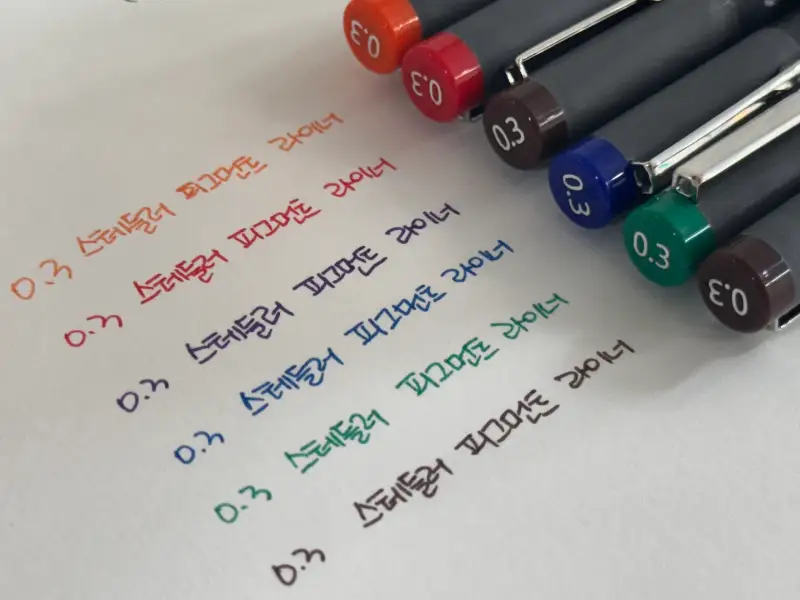 0.3
0.3
0.3
0.3
0.3
0.3
0.3 스테들러 피그먼트 라이너
0.3 스테들러 피그먼트 라이너
0.3 스테들러 피그먼트 라이너
0.3 스테들러 피그먼트 라이너
0.3 스테들러 피그먼트 라이너
0.3 스테들러 피그먼트 라이너